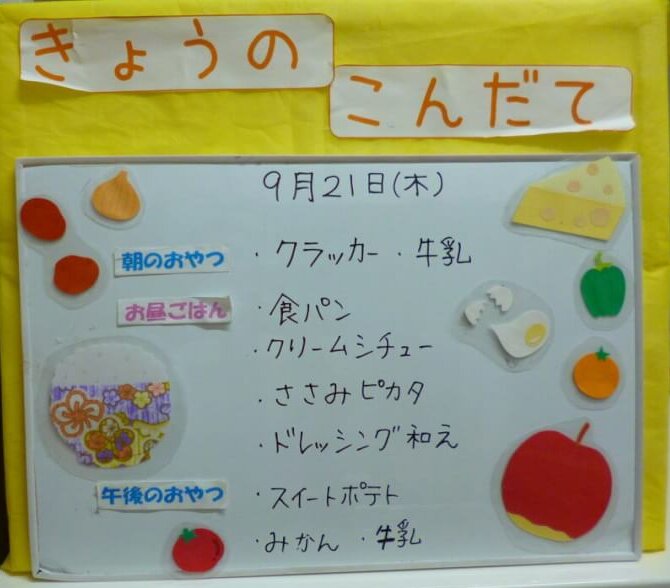 きょうの
こんだて
9月21日(木)
朝のおやつ ・クラッカー ・牛乳
お昼ごはん ・食パン
・クリームシチュー
・ささみピカタ
・ドレッシング和え
午後のおやつ ・スイートポテト
・みかん ・牛乳